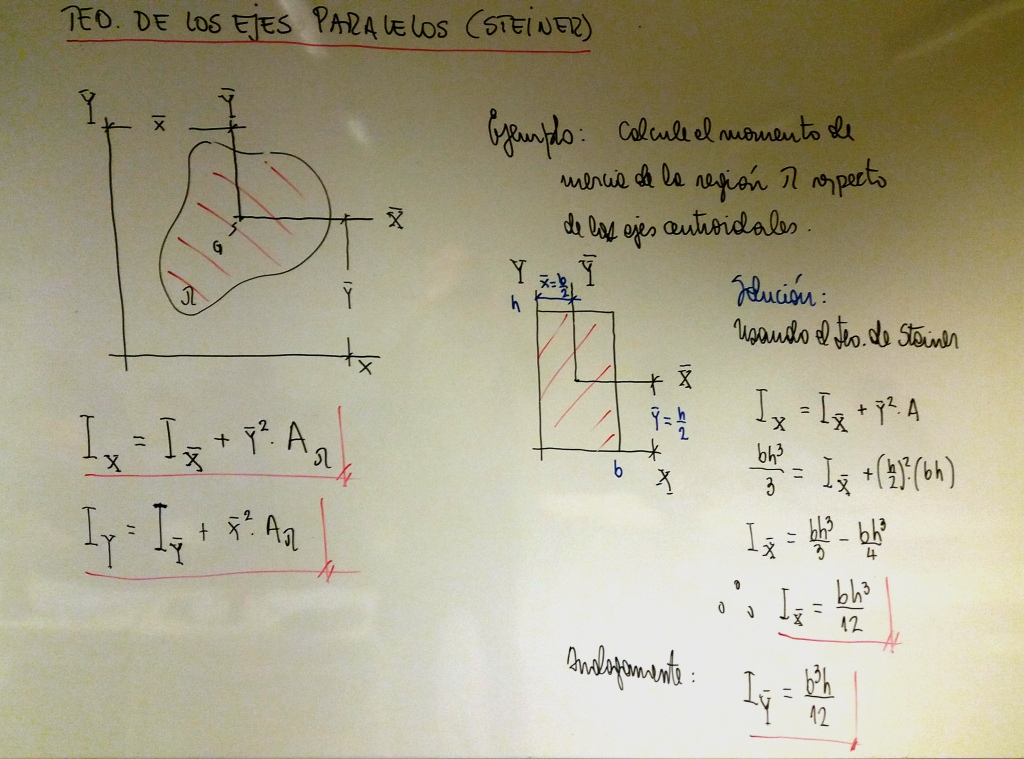 TEO. DE LOS EJES PARALELOS (STEINER)
Y̅ x̅ Y̅
X̅
G
Y̅
Ω
X
I_X = I_X̅ + Y̅². A_Ω
I_Y = I_Y̅ + x̅². A_Ω
Ejemplo: Calcule el momento de
inercia de la región Ω respecto
de los ejes centroidales.
Y x̅=b/2 Y̅
h
X̅
Y̅=h/2
b X
Solución:
Usando el teo. de Steiner
I_X = I_X̅ + Y̅². A
bh³/3 = I_X̅ + (h/2)².(bh)
I_X̅ = bh³/3 - bh³/4
∴ I_X̅ = bh³/12
Analogamente: I_Y̅ = b³h/12